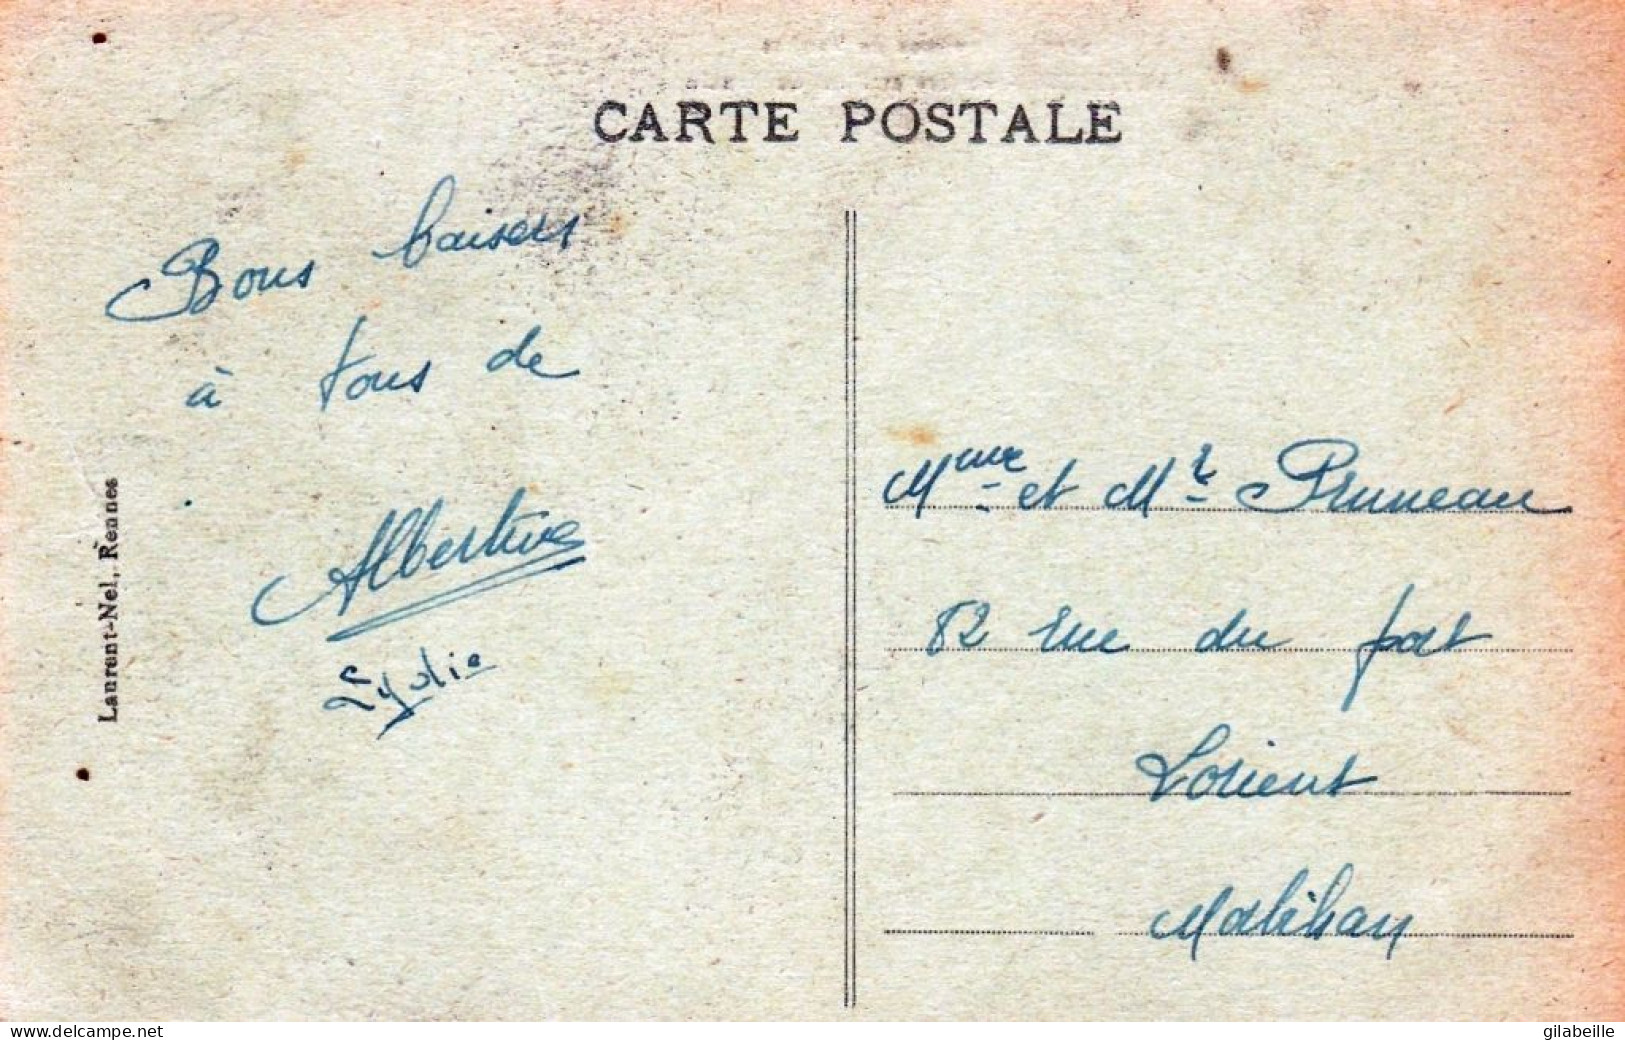 CARTE POSTALE
Bons baisers
à tous de
Albertine
Lydie
Laurent-Nel, Rennes
Mme et Mr Pruneau
82 rue du port
Lorient
Morbihan
www.delcampe.net
gilabeille